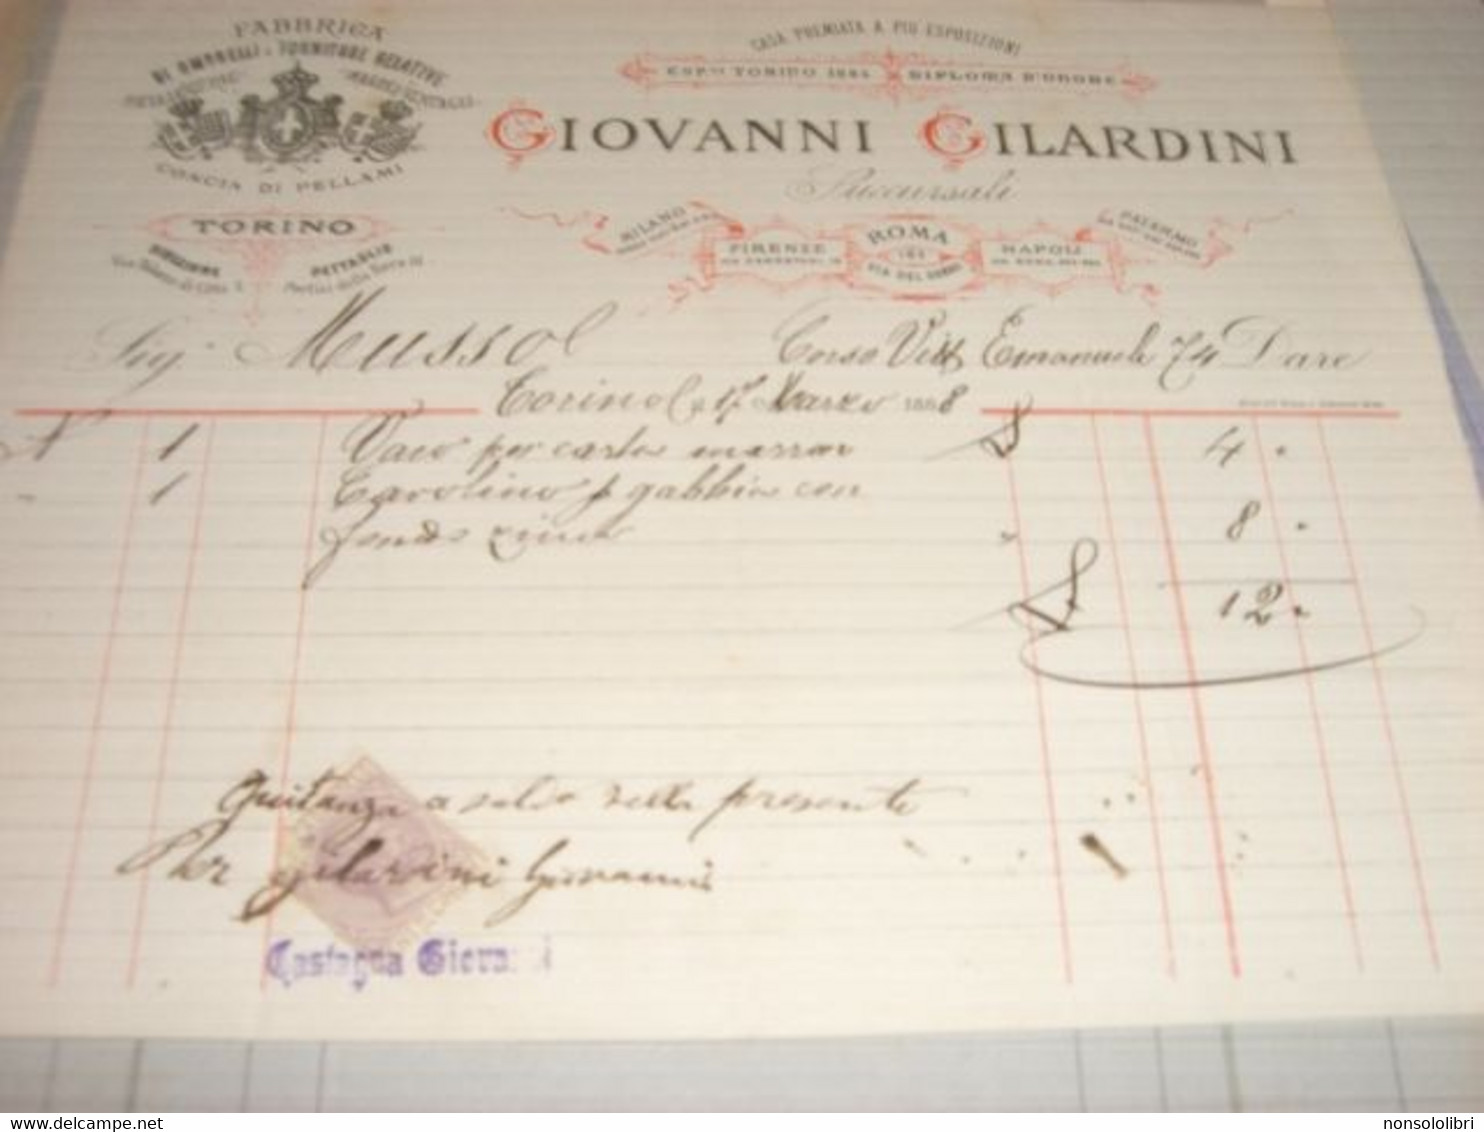 FABBRICA
DI OMBRELLI E FORNITURE RELATIVE
CONCIA DI PELLAMI
TORINO
DIREZIONE
DETTAGLIO
CASA PREMIATA A PIÙ ESPOSIZIONI
ESP.NE TORINO 1884 DIPLOMA D'ONORE
GIOVANNI GILARDINI
Succursali
MILANO
FIRENZE
ROMA
VIA DEL CORSO
NAPOLI
PALERMO
Sig. Mussol Corso Vitt Emanuele 74 Dare
Torino 17 Marzo 1888
1 Vaso per carte marron 4
1 Tavolino p gabbia con
fondo zinco 8
12
Quitanza a saldo della presente
Per Gilardini Giovanni
Castagna Giovanni
nonsololibri